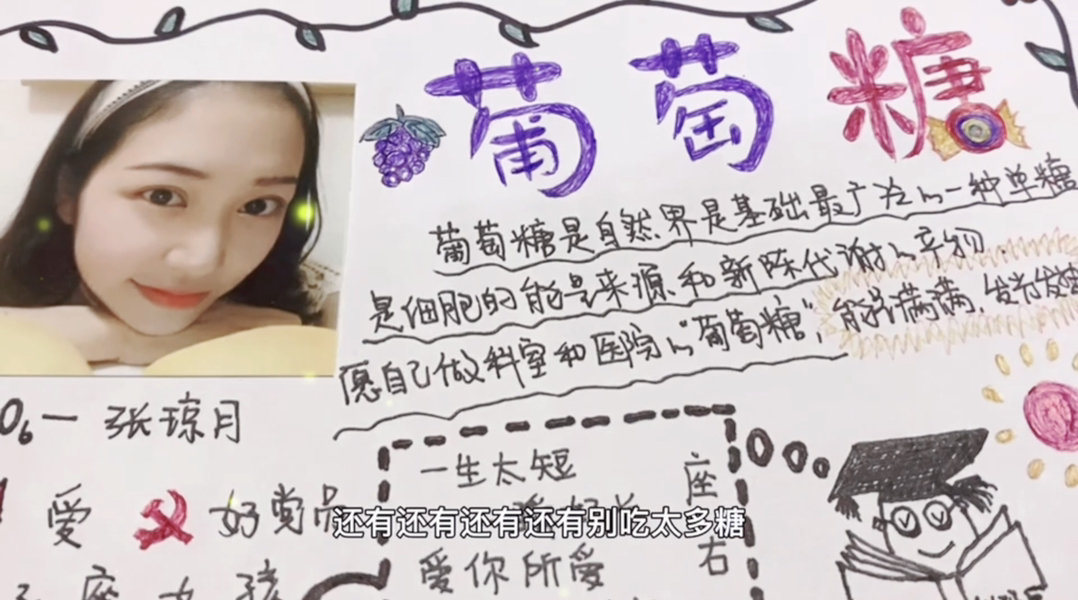 葡萄糖
葡萄糖是自然界是基础最广泛的一种单糖
是细胞的能量来源和新陈代谢的产物.
愿自己做科室和医院的"葡萄糖",能量满满,发光发热
06一 张琼月
爱 好党员
一生太短
座
右
爱你所爱
还有还有还有还有别吃太多糖